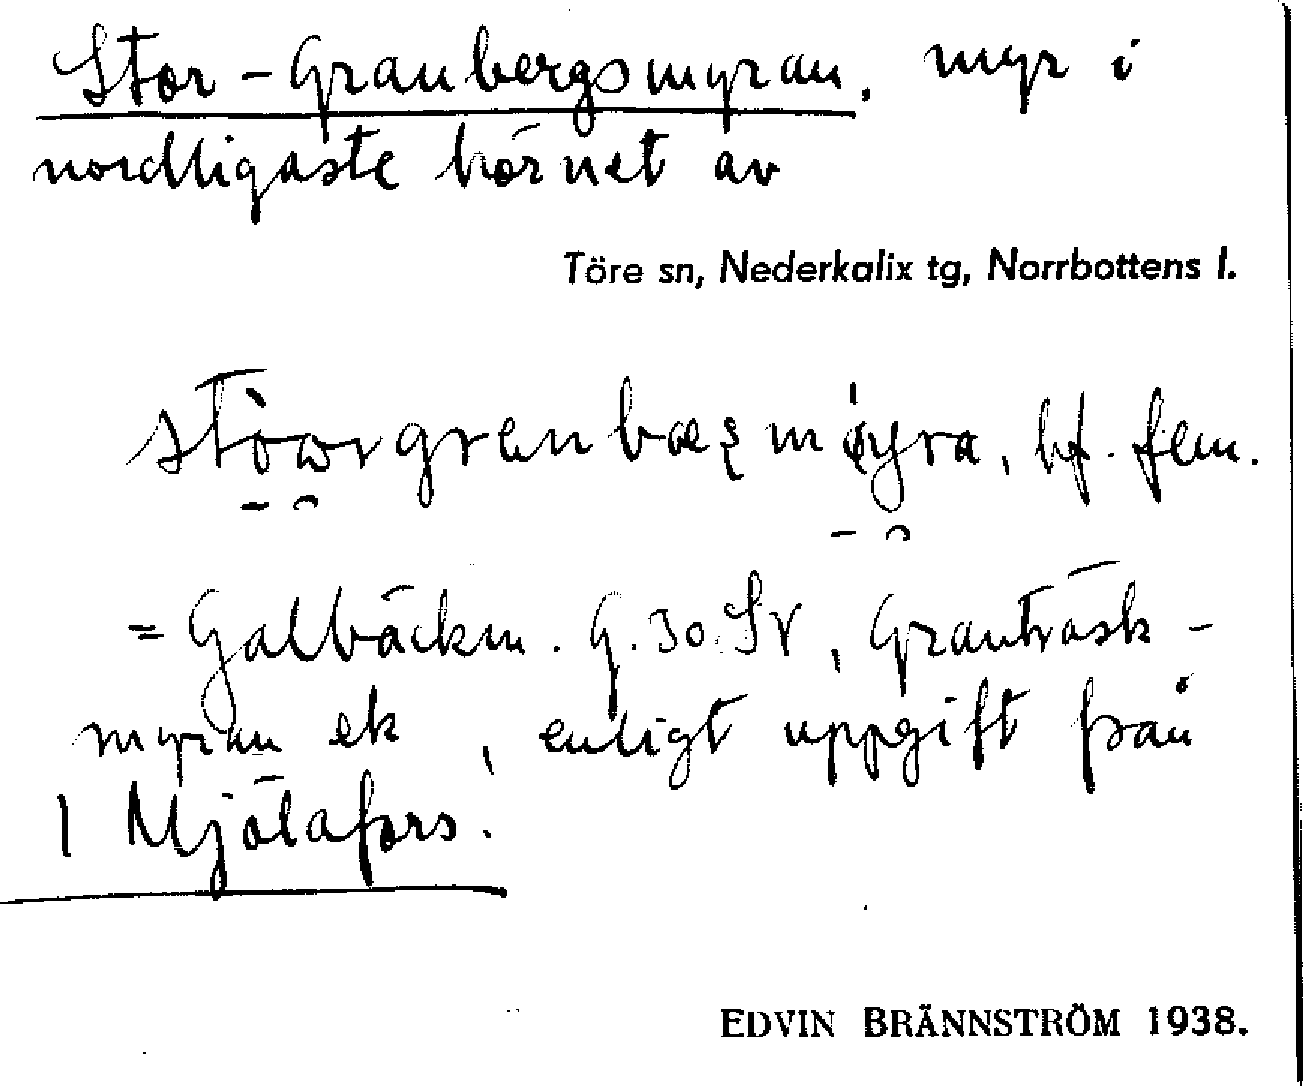 Stor-Granbergsmyran, myr i
nordligaste hörnet av
Töre sn, Nederkalix tg, Norrbottens l.
bf. fem.
= Galbäckm. G. 30. SV, Granträsk-
myran ek, enligt uppgift från
1 Mjölafors.
EDVIN BRÄNNSTRÖM 1938.